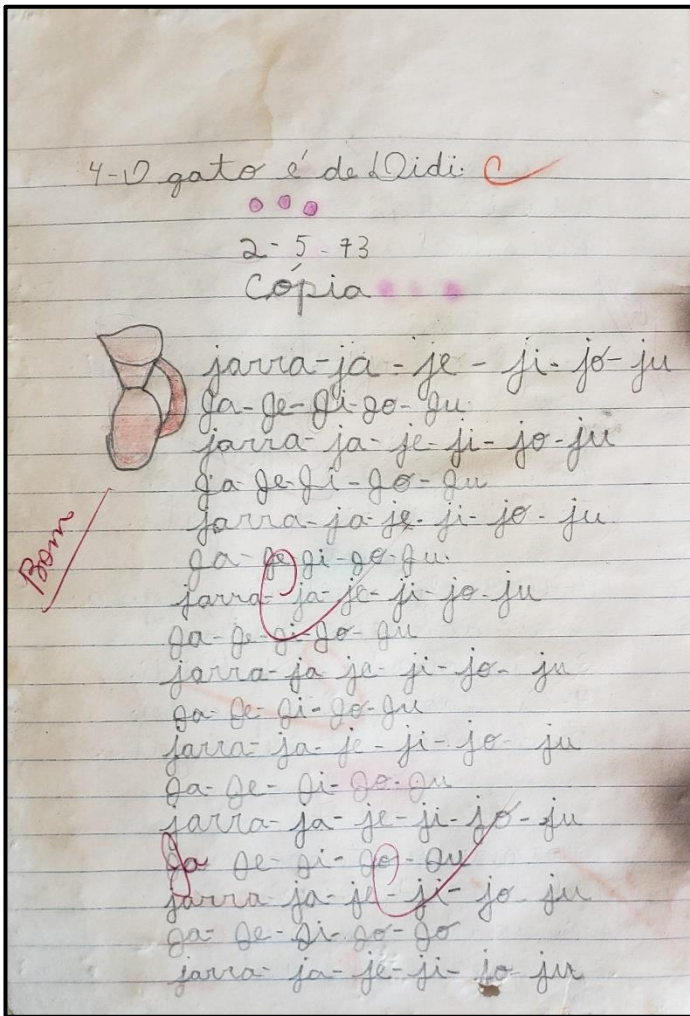 4-O gato é de Didi.
2-5-73
Cópia
jarra-ja-je-ji-jo-ju
Ja-Je-Ji-Jo-Ju
jarra-ja-je-ji-jo-ju
Ja-Je-Ji-Jo-Ju
jarra-ja-je-ji-jo-ju
Ja-Je-Ji-Jo-Ju.
Bom
jarra-ja-je-ji-jo-ju
Ja-Je-Ji-Jo-Ju
jarra-ja je-ji-jo-ju
Ja-Je-Ji-Jo-Ju
jarra-ja-je-ji-jo-ju
Ja-Je-Ji-Jo-Ju
jarra-ja-je-ji-jo-ju
Ja Je-Ji-Jo-Ju
jarra-ja-je-ji-jo ju
Ja-Je-Ji-Jo-Jo
jarra-ja-je-ji-jo ju